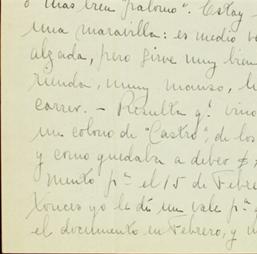 o mas bien "palomo". Estoy
una maravilla: es medio
alzada, pero sirve muy bien
rienda, muy manso, l
correr. - Resulta q.e vino
un colono de "Castro", de los
y como quedaba a deber $
mento p.a el 15 de Febre
tonces yo le dí un vale p.a q
el documento en Febrero, y